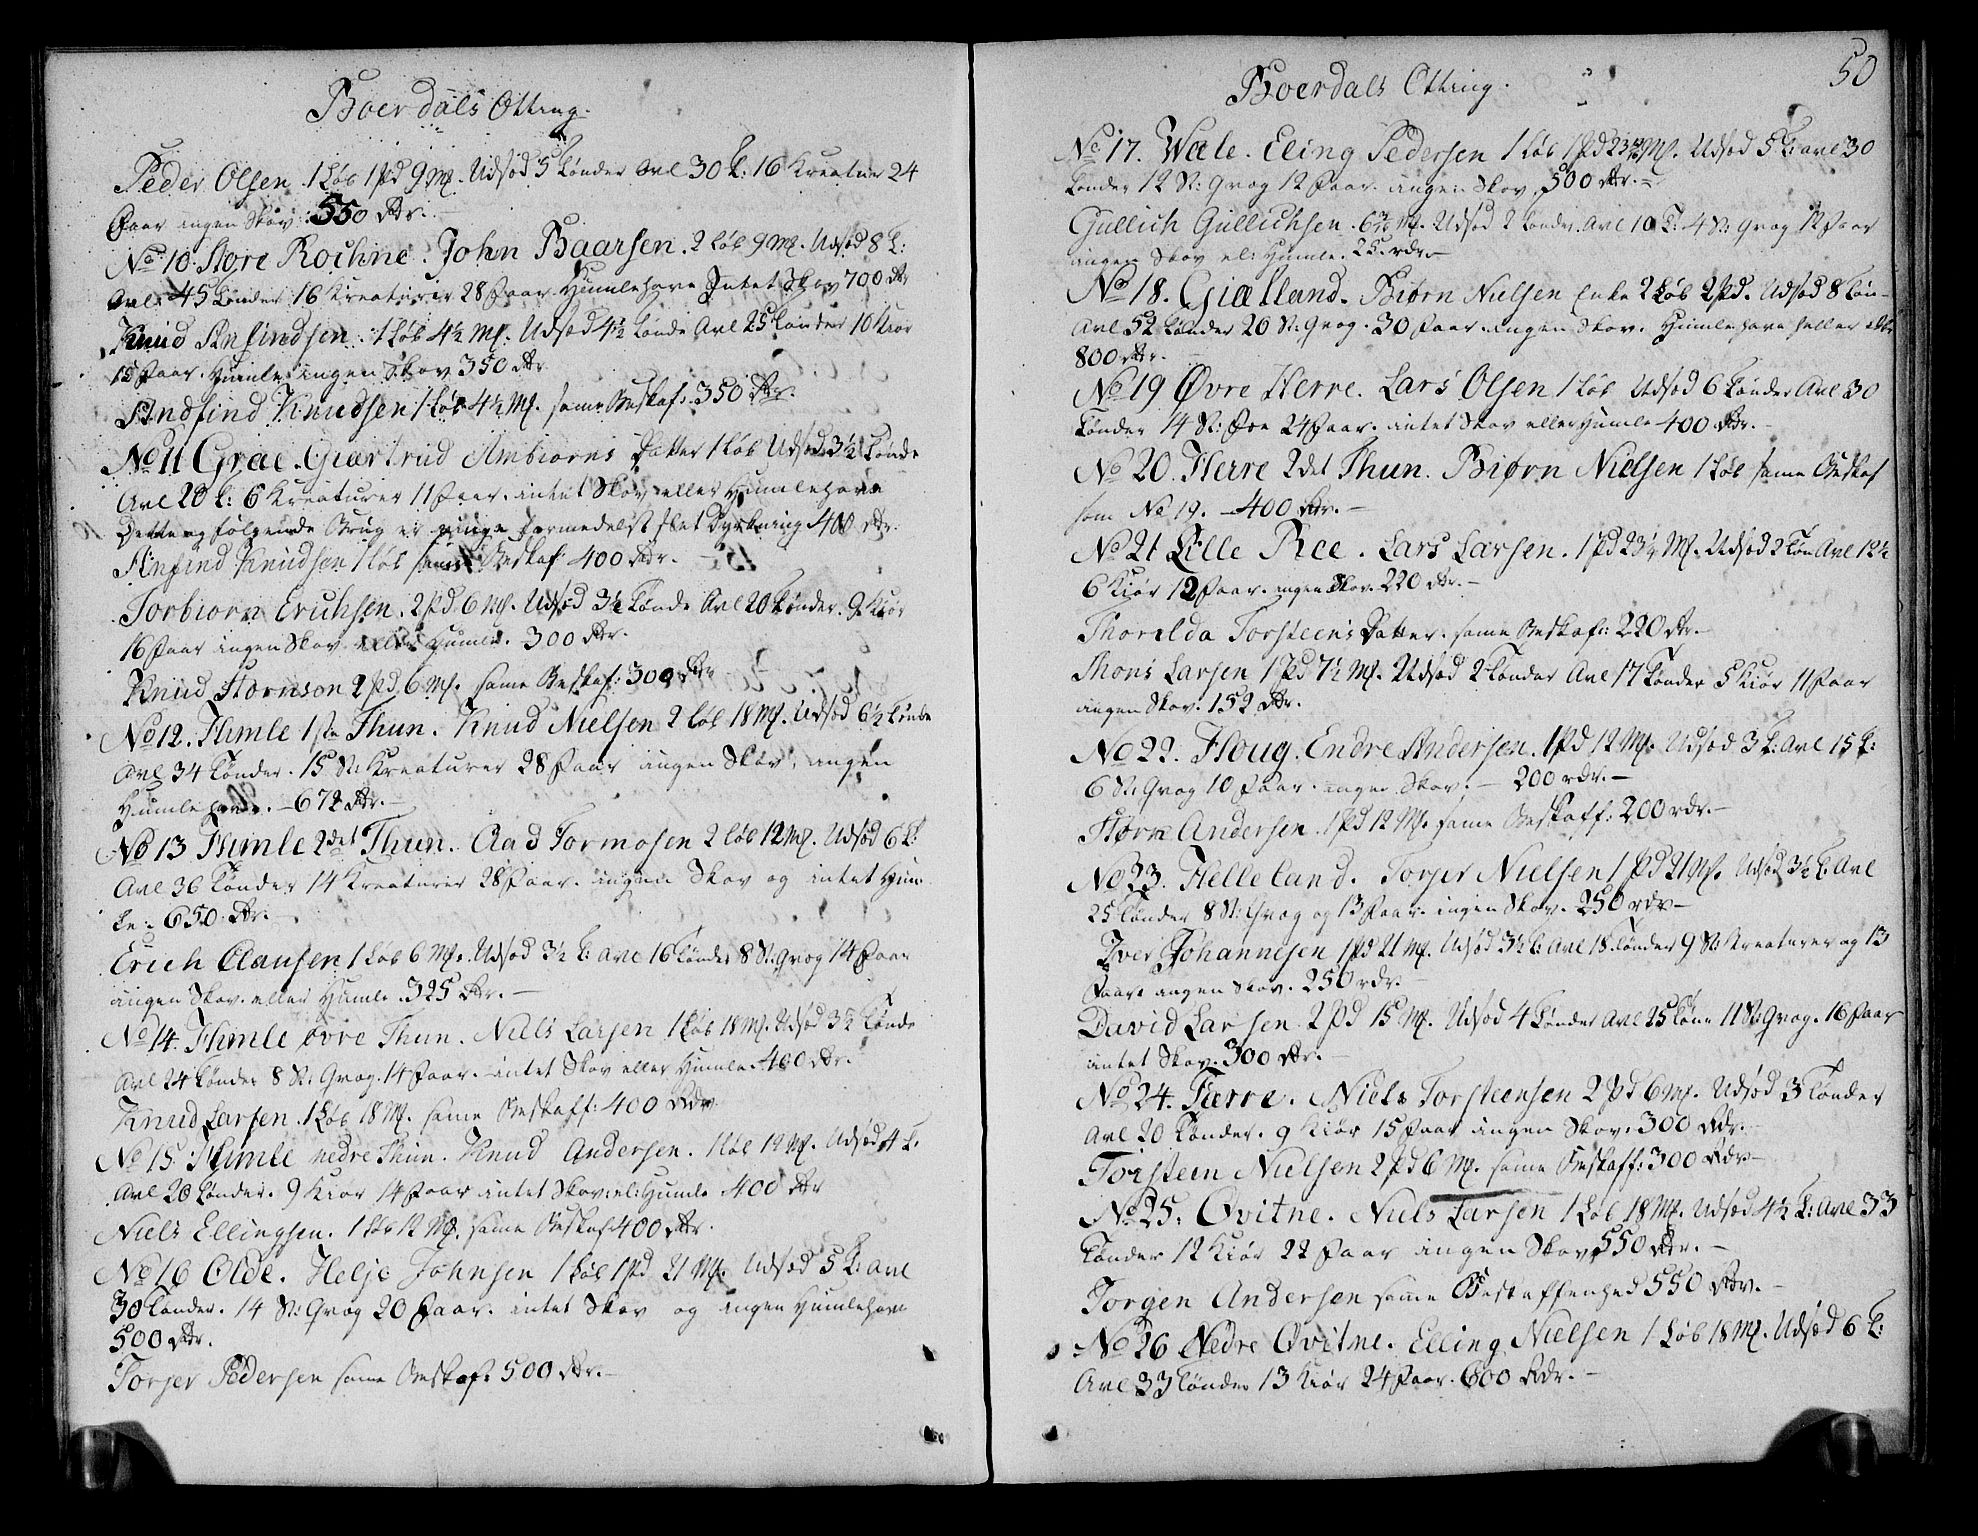 Boerdals Otting.
Peder Olsen 1 Løb 1 Pd 9 Mf. Udsæd 5 tønder Avl 30 t: 16 Kreatur 24
Faar ingen Skov. 550 Rdr.
No 10. Store Rochne. John Baarsen. 2 Løb 9 Mf. Udsæd 8 t:
Avl. 45 tønder 16 Kreaturer 28 Faar Humlehave Intet Skov 700 Rdr
Knud Anfindsen. 1 Løb 4½ Mf. Udsæd 4½ tønde Avl 25 tønder 10 Kiør
15 Faar. Humle ingen Skov 350 Rdr
Andfind Knudsen 1 Løb 4½ Mf. same Beskaf: 350 Rdr.
No 11 Grae. Giærtrud Ambiørns Datter 1 Løb Udsæd 3½ tønde
Avl 20 t: 6 Kreaturer 11 Faar. intet Skov eller Humlehave
Dette og følgende Brug er ringe formedelst slet Dyrkning 400 Rdr.
Anfind Knudsen 1 Løb same Beskaf 400 Rdr.
Torbiørn Erichsen. 2 Pd. 6 Mf. Udsæd 3½ tønde Avl 20 tønder. 9 Kiør
16 Faar ingen Skov eller Humle. 300 Rdr.
Knud Størnson 2 Pd. 6 Mf. same Beskaf: 300 Rdr
No 12. Himle 1ste Thun. Knud Nielsen 2 Løb 18 Mf. Udsæd 6½ tønde
Avl 34 tønder. 15 St: Kreaturer 28 Faar ingen Skov, ingen
Humlehave. – 672 Rdr. –
No 13 Himle 2det Thun. Aad Tormosen 2 Løb 12 Mf. Udsæd 6 t:
Avl 36 tønder 14 Kreaturer 28 Faar. ingen Skov og intet Hum
le: 650 Rdr. –
Erich Clausen 1 Løb 6 Mf. Udsæd 3½ t: Avl 16 tønder 8 St: Qvæg 14 Faar
ingen Skov eller Humle. 325 Rdr. –
No 14. Himle øvre Thun. Niels Larsen 1 Løb 18 Mf. Udsæd 3½ tønde
Avl 24 tønder 8 St: Qvæg. 14 Faar. – intet Skov eller Humle. 400 Rdr.
Knud Larsen. 1 Løb 18 Mf. same Beskaff: 400 Rdr
No 15. Himle nedre Thun. Knud Andersen. 1 Løb 12 Mf. Udsæd 4 t.
Avl 20 tønder. 9 Kiør 14 Faar intet Skov el: Humle 400 Rdr
Niels Ellingsen. 1 Løb 12 Mf. same Beskaf 400 Rdr.
No 16 Olde. Helje Johnsen 1 Løb 1 Pd 21 Mf. Udsæd 5 t: Avl
30 tønder. 14 St: Qvæg 20 Faar. intet Skov og ingen Humlehave
500 Rdr.
Torjer Pedersen same Beskaf: 500 Rdr. –
50
Boerdals Otting.
No 17. Wæle. Eling Pedersen 1 Løb 1 Pd 23 Mf. Udsæd 5 t: Avl 30
tønder 12 St: Qvæg 12 Faar. ingen Skov. 500 Rdr. –
Gullich Gullichsen. 6¾ Mf. Udsæd 2 tønder. Avl 10 t: 4 St: Qvæg 12 Faar
ingen Skov el: Humle. 25 rdr. –
No 18. Giælland. Biørn Nielsen Enke 2 Løb 2 Pd. Udsæd 8 tøn-
Avl 52 tønder 20 St: Qvæg. 30 Faar. ingen Skov. Humlehave heller ikke
800 Rdr. –
No 19 Øvre Herre. Lars Olsen 1 Løb Udsæd 6 tønder Avl 30
tønder 14 St: Fæe 24 Faar. intet Skov eller Humle 400 Rdr. –
No 20. Herre 2det Thun. Biørn Nielsen 1 Løb same Beskaf
som No 19. – 400 Rdr. –
No 21 Lille Ree. Lars Larsen. 1 Pd 23½ Mf. Udsæd 2 tøn Avl 12½
6 Kiør 12 Faar. ingen Skov. 220 Rdr. –
Thorilda Torsteens Datter. same Beskaf: 220 Rdr. –
Mons Larsen 1 Pd 7½ Mf. Udsæd 2 tønder Avl 17 tønder 5 Kiør 11 Faar
ingen Skov. 152 Rdr.
No 22. Houg. Endre Andersen. 1 Pd 12 Mf. Udsæd 3 t: Avl 15 t:
6 St: Qvæg 10 Faar. ingen Skov. – 200 rdr. –
Større Andersen. 1 Pd 12 Mf. same Beskaff: 200 rdr. –
No 23. Helleland. Torjer Nielsen 1 Pd 21 Mf. Udsæd 3½ t. Avl
25 tønder 8 St: Qvæg og 13 Faar. ingen Skov. 250 rdr –
Iver Johannesen 1 Pd 21 Mf. Udsæd 3½ t. Avl 18 tønder 9 St: Kreaturer og 13
Faar ingen Skov. 250 rdr. –
David Larsen 2 Pd 15 Mf. Udsæd 4 tønder Avl 25 tøne 11 St: Qvæg. 16 Faar
intet Skov. 300 Rdr. –
No 24. Færre. Niels Torsteensen 2 Pd 6 Mf. Udsæd 3 tønder
Avl 20 tønder. 9 Kiør 15 Faar ingen Skov. 300 Rdr. –
Torsteen Nielsen 2 Pd 6 Mf. same Beskaff: 300 Rdr –
No 25. Qvitne. Niels Larsen 1 Løb 18 Mf. Udsæd 4½ t: Avl 33
tønder 12 Kiør 22 Faar ingen Skov 550 Rdr. –
Torgen Andersen same Beskaffenhed 550 Rdr. –
No 26 Nedre Qvitne. Elling Nielsen 1 Løb 18 Mf. Udsæd 6 t:
Avl 33 tønder 13 Kiør 24 Faar. 600 Rdr. –